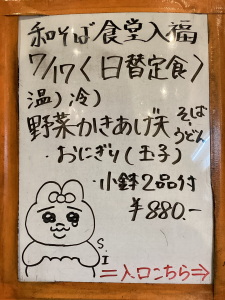 和そば食堂入福
7/17〈日替定食〉
温)冷)
そば・うどん
野菜かきあげ天
・おにぎり(玉子)
・小鉢2品付
¥880.-
S.I
=入口こちら⇒